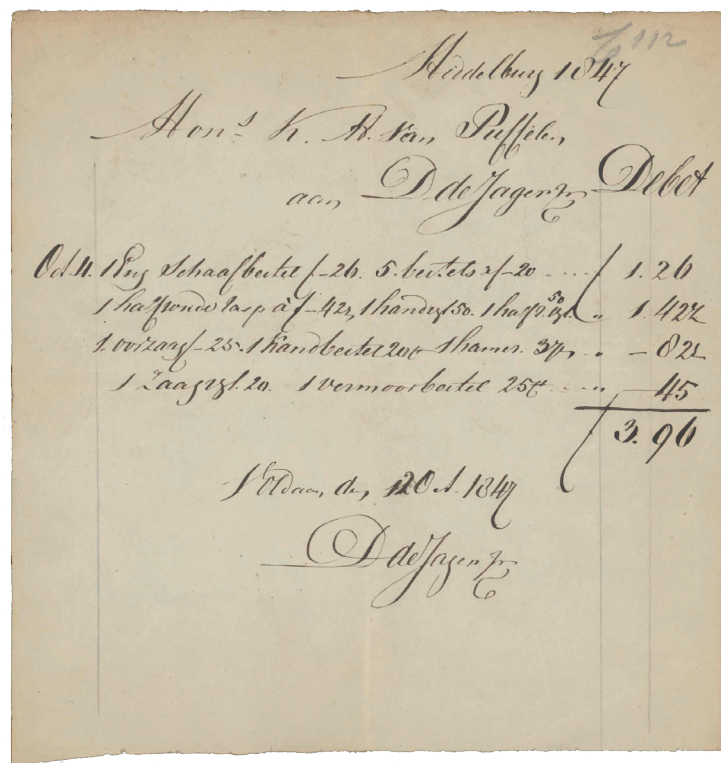 112
Middelburg 1847
Mons. K. M. van Puffelen
aan D de Jager Jr Debet
Oct. 4. 1 Eng Schaafbeitel f -26. 5. beitels à f -20 .... f 1.26
1 halfronde rasp à f -42½, 1 handvyl 50. 1 half r. vyl. 50 " 1.42½
1. oorzaag f -25. 1 handbeitel 20ct 1 hamer. 37½ .. " -82½
1 Zaagvyl. 20. 1 vermoorbeitel 25ct .... " -45
f 3.96
Voldaan den 12 Oct. 1847
D de Jager Jr